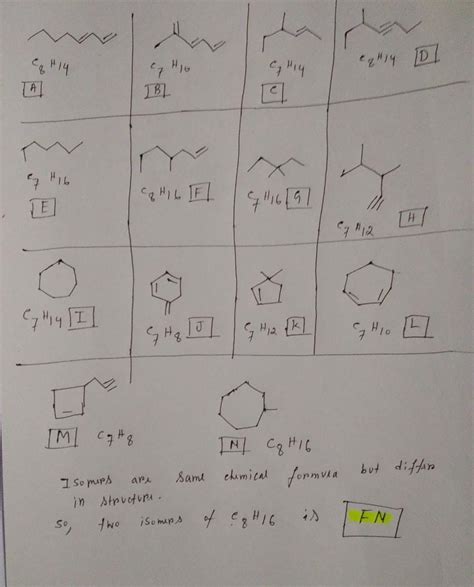 C8H14
A
C7H10
B
C7H14
C
C8H14 D
C7H16
E
C8H16 F
C7H16 G
C7H12 H
C7H14 I
C7H8 J
C7H12 K
C7H10 L
M C7H8
N C8H16
Isomers are same chemical formula but differ
in structure.
So, two isomers of C8H16 is FN